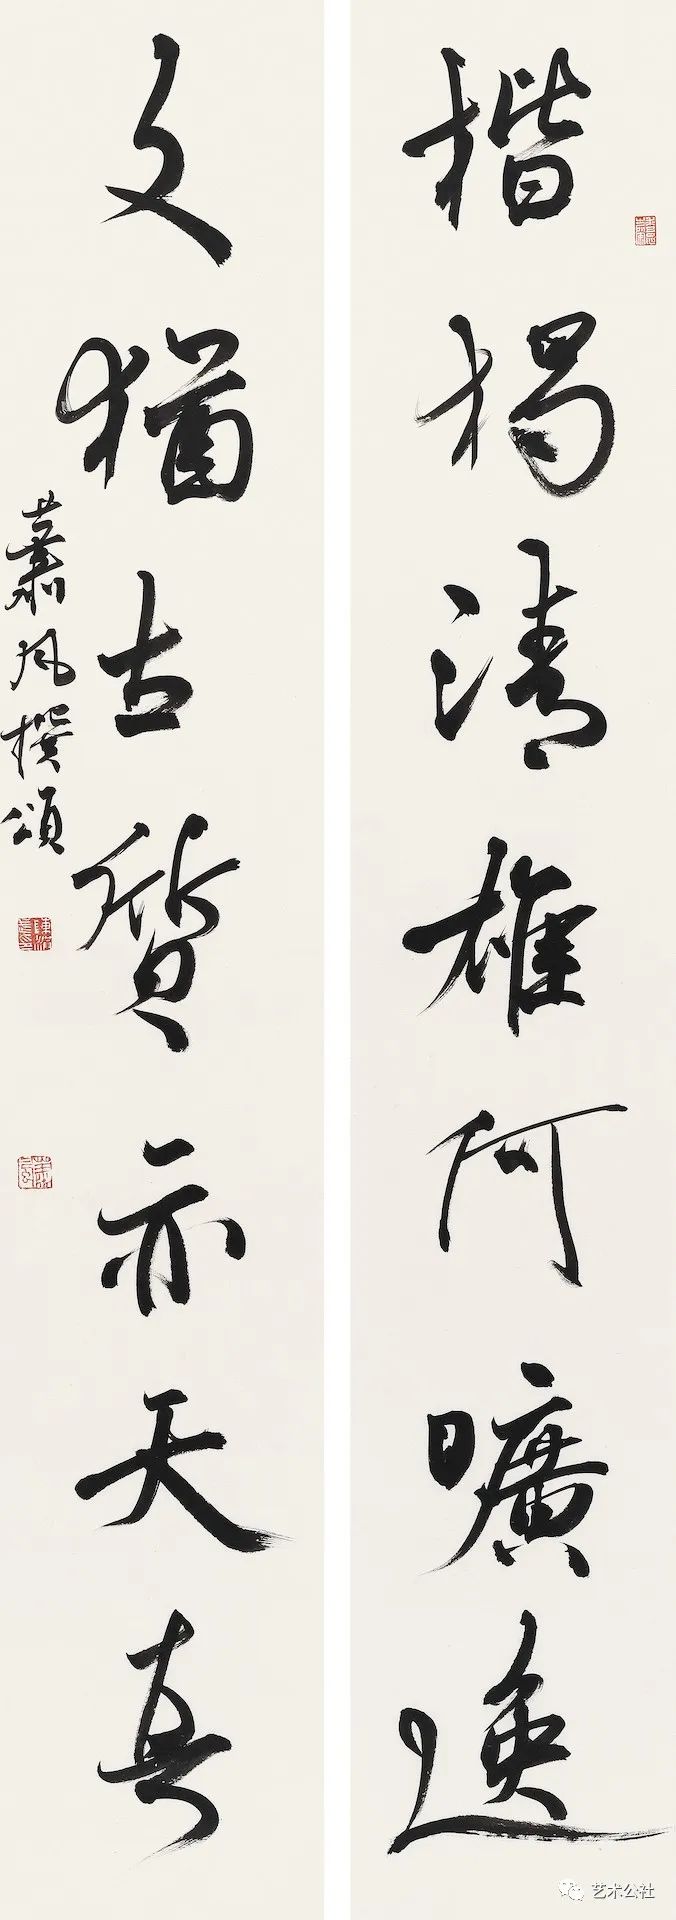 楷揭清雄何曠逸
文猶古質亦天真
蕭風撰頌
艺术公社